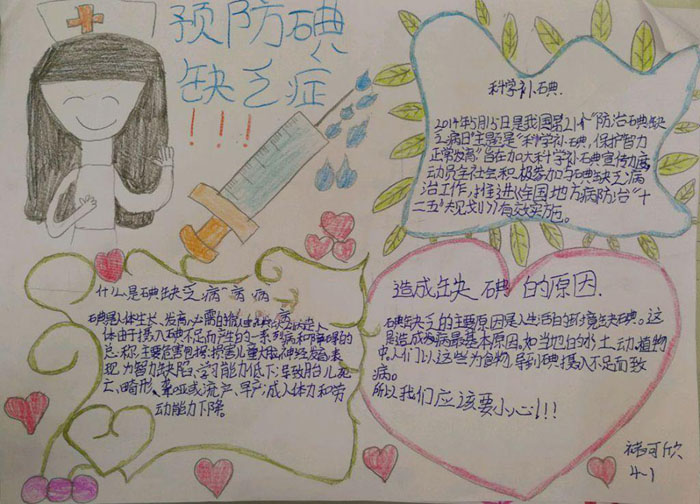 预防碘
缺乏症
!!!
科学补碘.
2014年5月15日是我国第21个“防治碘缺
乏病日”主题是“科学补碘,保护智力
正常发育”旨在加大科学补碘宣传力度,
动员全社会积极参加与碘缺乏病
治工作,推进全国地方病防治“十
二五”规划》有效实施。
什么是碘缺乏病
碘是人体生长、发育必需的微
体由于摄入碘不足而产生的一系列病和障碍的
总称,主要危害包括:损害儿童大脑神经发育表
现为智力缺陷、学习能力低下;导致胎儿死
亡、畸形、聋哑或流产、早产;成人体力和劳
动能力下降。
造成缺碘的原因.
碘缺乏的主要原因是人生活的环境缺碘。这
是造成病最基本原因。如当地的水土、动、植物
中,人们以这些为食物,导到碘摄入不足而致
病。
所以我们应该要小心!!!
褚可欣
4-1